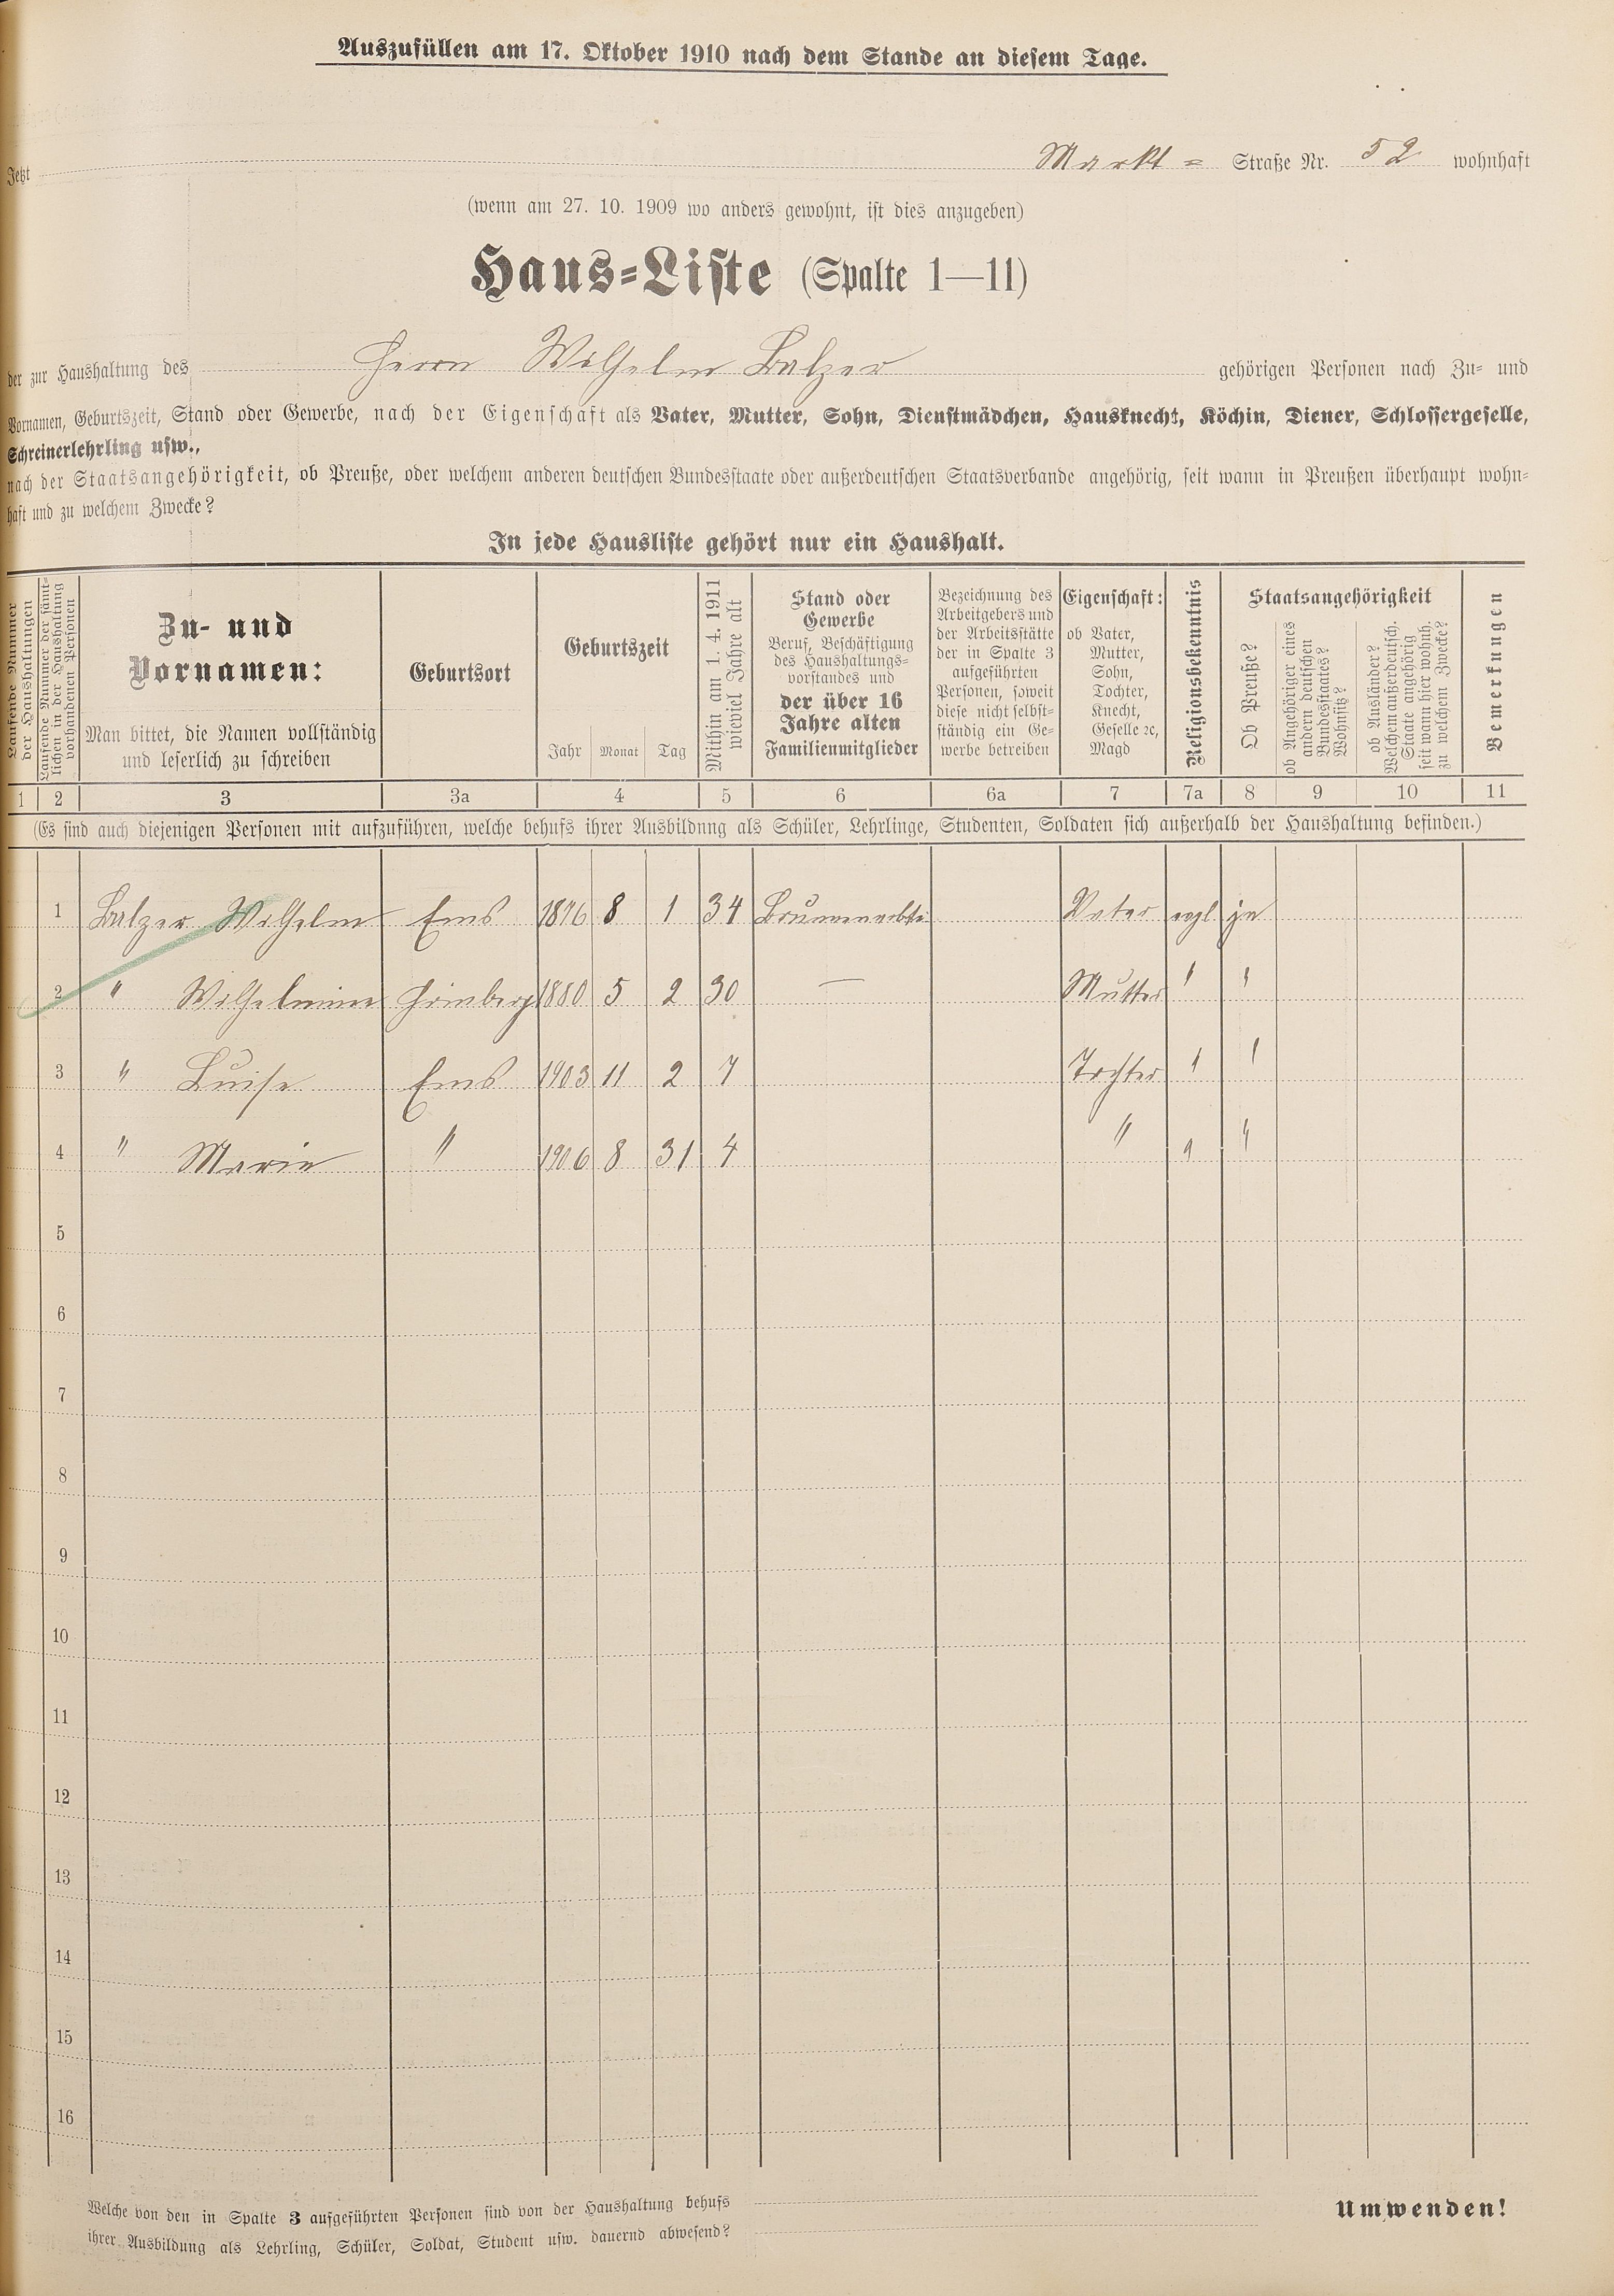 Auszufüllen am 17. Oktober 1910 nach dem Stande an diesem Tage.
Jetzt Markt = Straße Nr. 52 wohnhaft
(wenn am 27. 10. 1909 wo anders gewohnt, ist dies anzugeben)
Haus-Liste (Spalte 1—11)
der zur Haushaltung des Herrn Wilhelm Balzer gehörigen Personen nach Zu- und
Vornamen, Geburtszeit, Stand oder Gewerbe, nach der Eigenschaft als Vater, Mutter, Sohn, Dienstmädchen, Hausknecht, Köchin, Diener, Schlossergeselle,
Schreinerlehrling usw.,
nach der Staatsangehörigkeit, ob Preuße, oder welchem anderen deutschen Bundesstaate oder außerdeutschen Staatsverbande angehörig, seit wann in Preußen überhaupt wohn-
haft und zu welchem Zwecke?
In jede Hausliste gehört nur ein Haushalt.
Laufende Nummer
der Haushaltungen
Laufende Nummer der sämt-
lichen in der Haushaltung
vorhandenen Personen
Zu- und
Vornamen:
Man bittet, die Namen vollständig
und leserlich zu schreiben
Geburtsort
Geburtszeit
Jahr Monat Tag
Mithin am 1. 4. 1911
wieviel Jahre alt
Stand oder
Gewerbe
Beruf, Beschäftigung
des Haushaltungs-
vorstandes und
der über 16
Jahre alten
Familienmitglieder
Bezeichnung des
Arbeitgebers und
der Arbeitsstätte
der in Spalte 3
aufgeführten
Personen, soweit
diese nicht selbst-
ständig ein Ge-
werbe betreiben
Eigenschaft:
ob Vater,
Mutter,
Sohn,
Tochter,
Knecht,
Geselle ꝛc,
Magd
Religionsbekenntnis
Staatsangehörigkeit
Ob Preuße?
ob Angehöriger eines
andern deutschen
Bundesstaates?
Wohnsitz?
ob Ausländer?
Welchem außerdeutsch.
Staate angehörig
seit wann hier wohnh.
zu welchem Zwecke?
Bemerkungen
1 2 3 3a 4 5 6 6a 7 7a 8 9 10 11
(Es sind auch diejenigen Personen mit aufzuführen, welche behufs ihrer Ausbildnng als Schüler, Lehrlinge, Studenten, Soldaten sich außerhalb der Haushaltung befinden.)
1 Balzer Wilhelm Ems 1876 8 1 34 Vater evgl ja
2 " Wilhelmine 1880 5 2 30 — Mutter " "
3 " Luise Ems 1903 11 2 7 Tochter " "
4 " Marie " 1906 8 31 4 " " "
5
6
7
8
9
10
11
12
13
14
15
16
Welche von den in Spalte 3 aufgeführten Personen sind von der Haushaltung behufs
ihrer Ausbildung als Lehrling, Schüler, Soldat, Student usw. dauernd abwesend?
Umwenden!